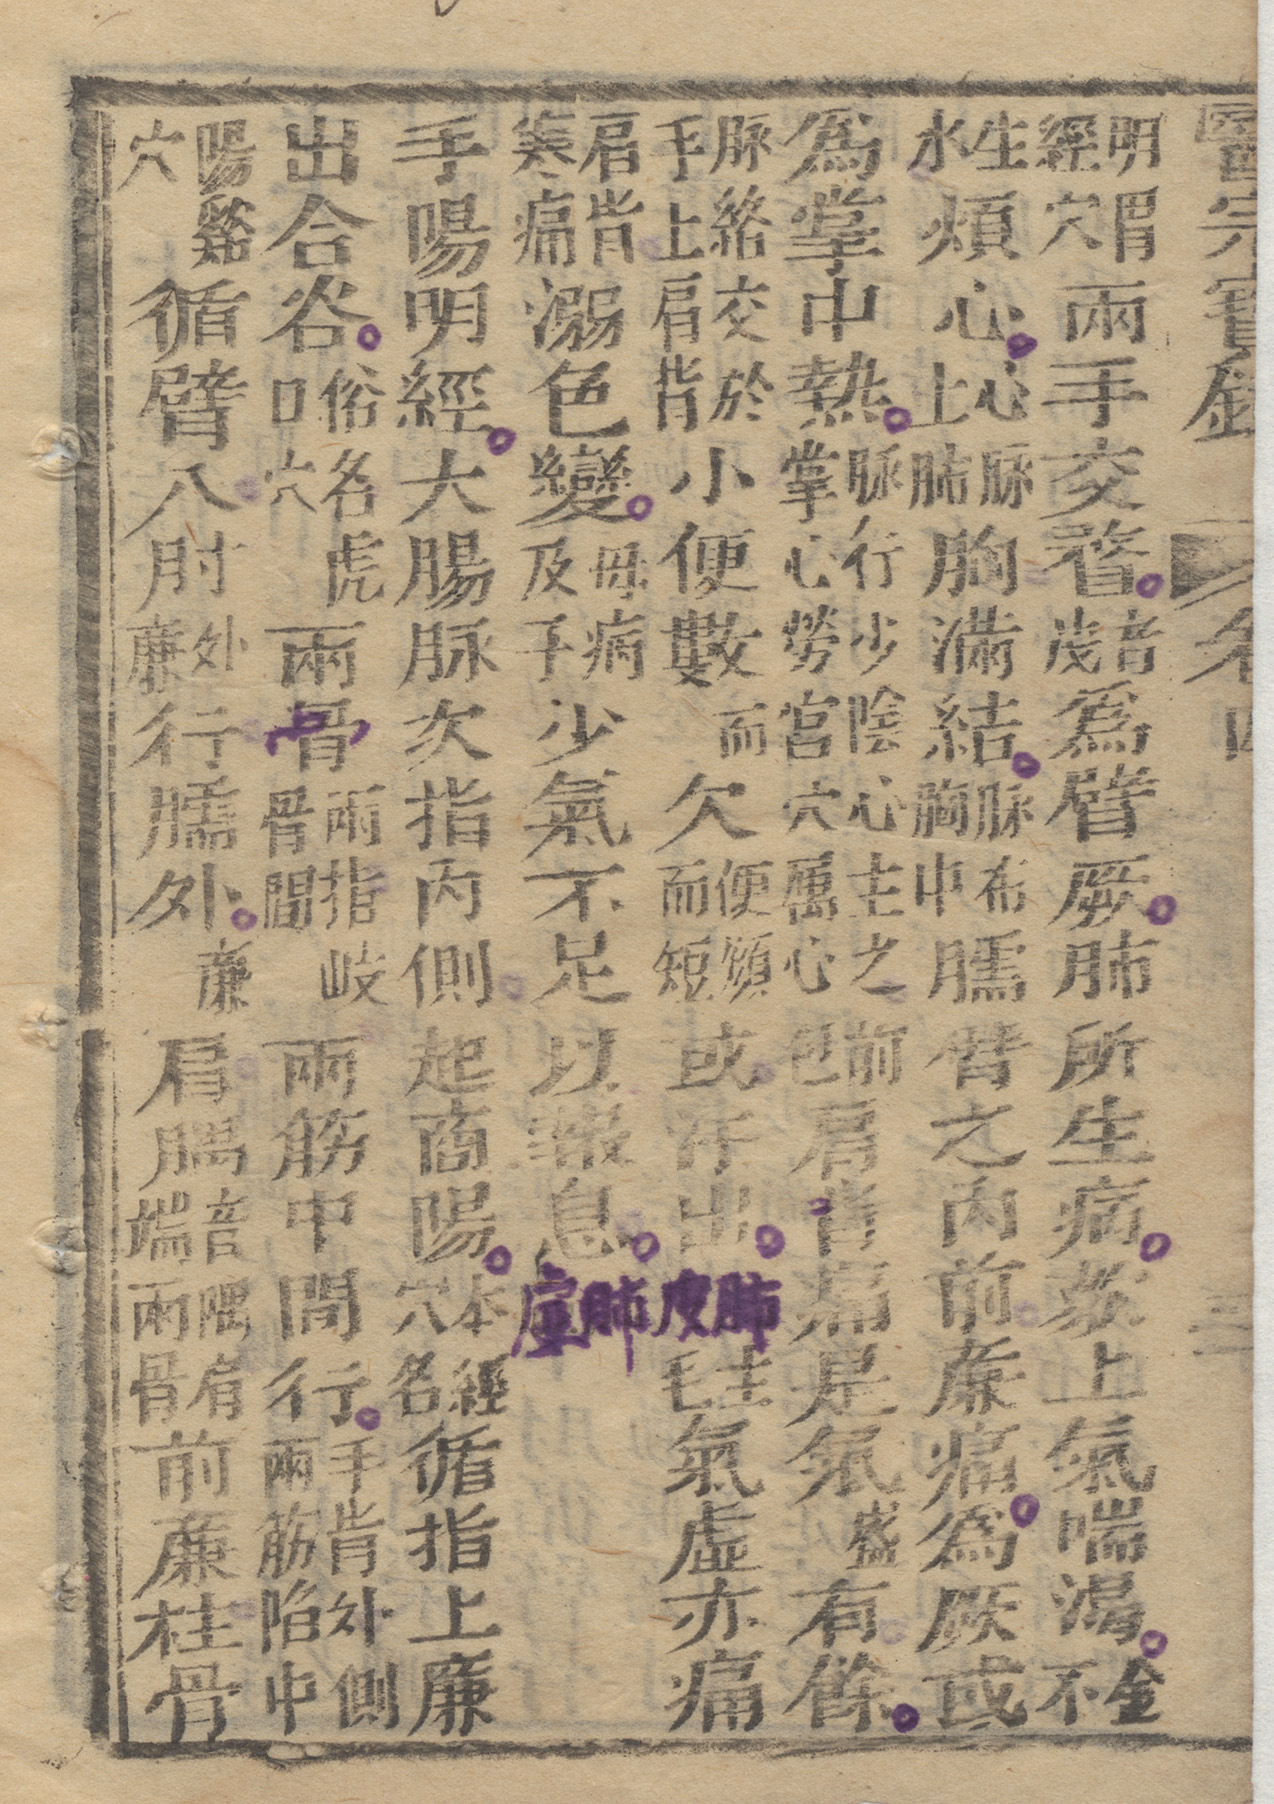 醫宗寶 卷四 三
明眉經穴兩手交瞀音茂為臂厥肺所生病欬上氣喘渴金不
生水煩心心脉上肺胸滿結脉布胸中臑臂之內前廉痛為厥或
為掌中熱脉行少陰心主之前掌心勞宮穴屬心包肩背痛是氣盛有餘
脉絡交於手上肩背小便數而欠便頻而短或汗出肺主皮毛氣虛亦痛
肩背寒痛溺色變母病及子少氣不足以報息肺虛
手陽明經大腸脉次指內側起商陽本經穴名循指上廉
出合谷俗名虎口穴兩骨兩指岐骨間兩筋中間行手背外側兩筋陷中
陽谿穴循臂入肘外廉行臑外廉肩髃音隅肩端兩骨前廉柱骨